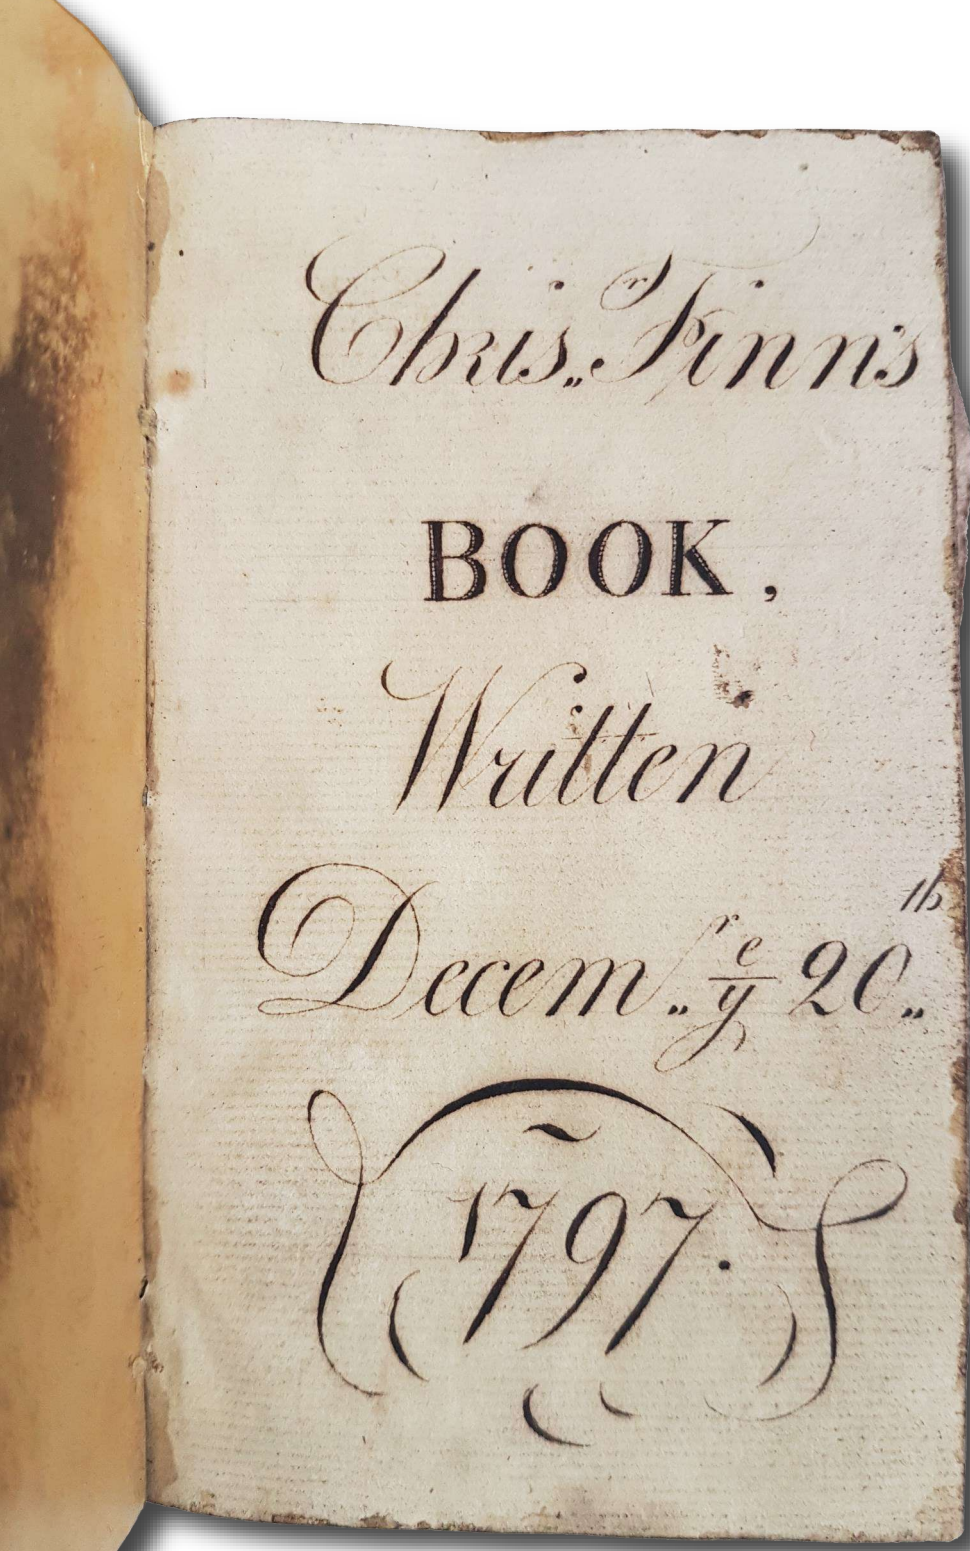 Chris„ʳ Finn's
BOOK,
Written
Decem„ʳ yᵉ 20„ᵗʰ
1797.